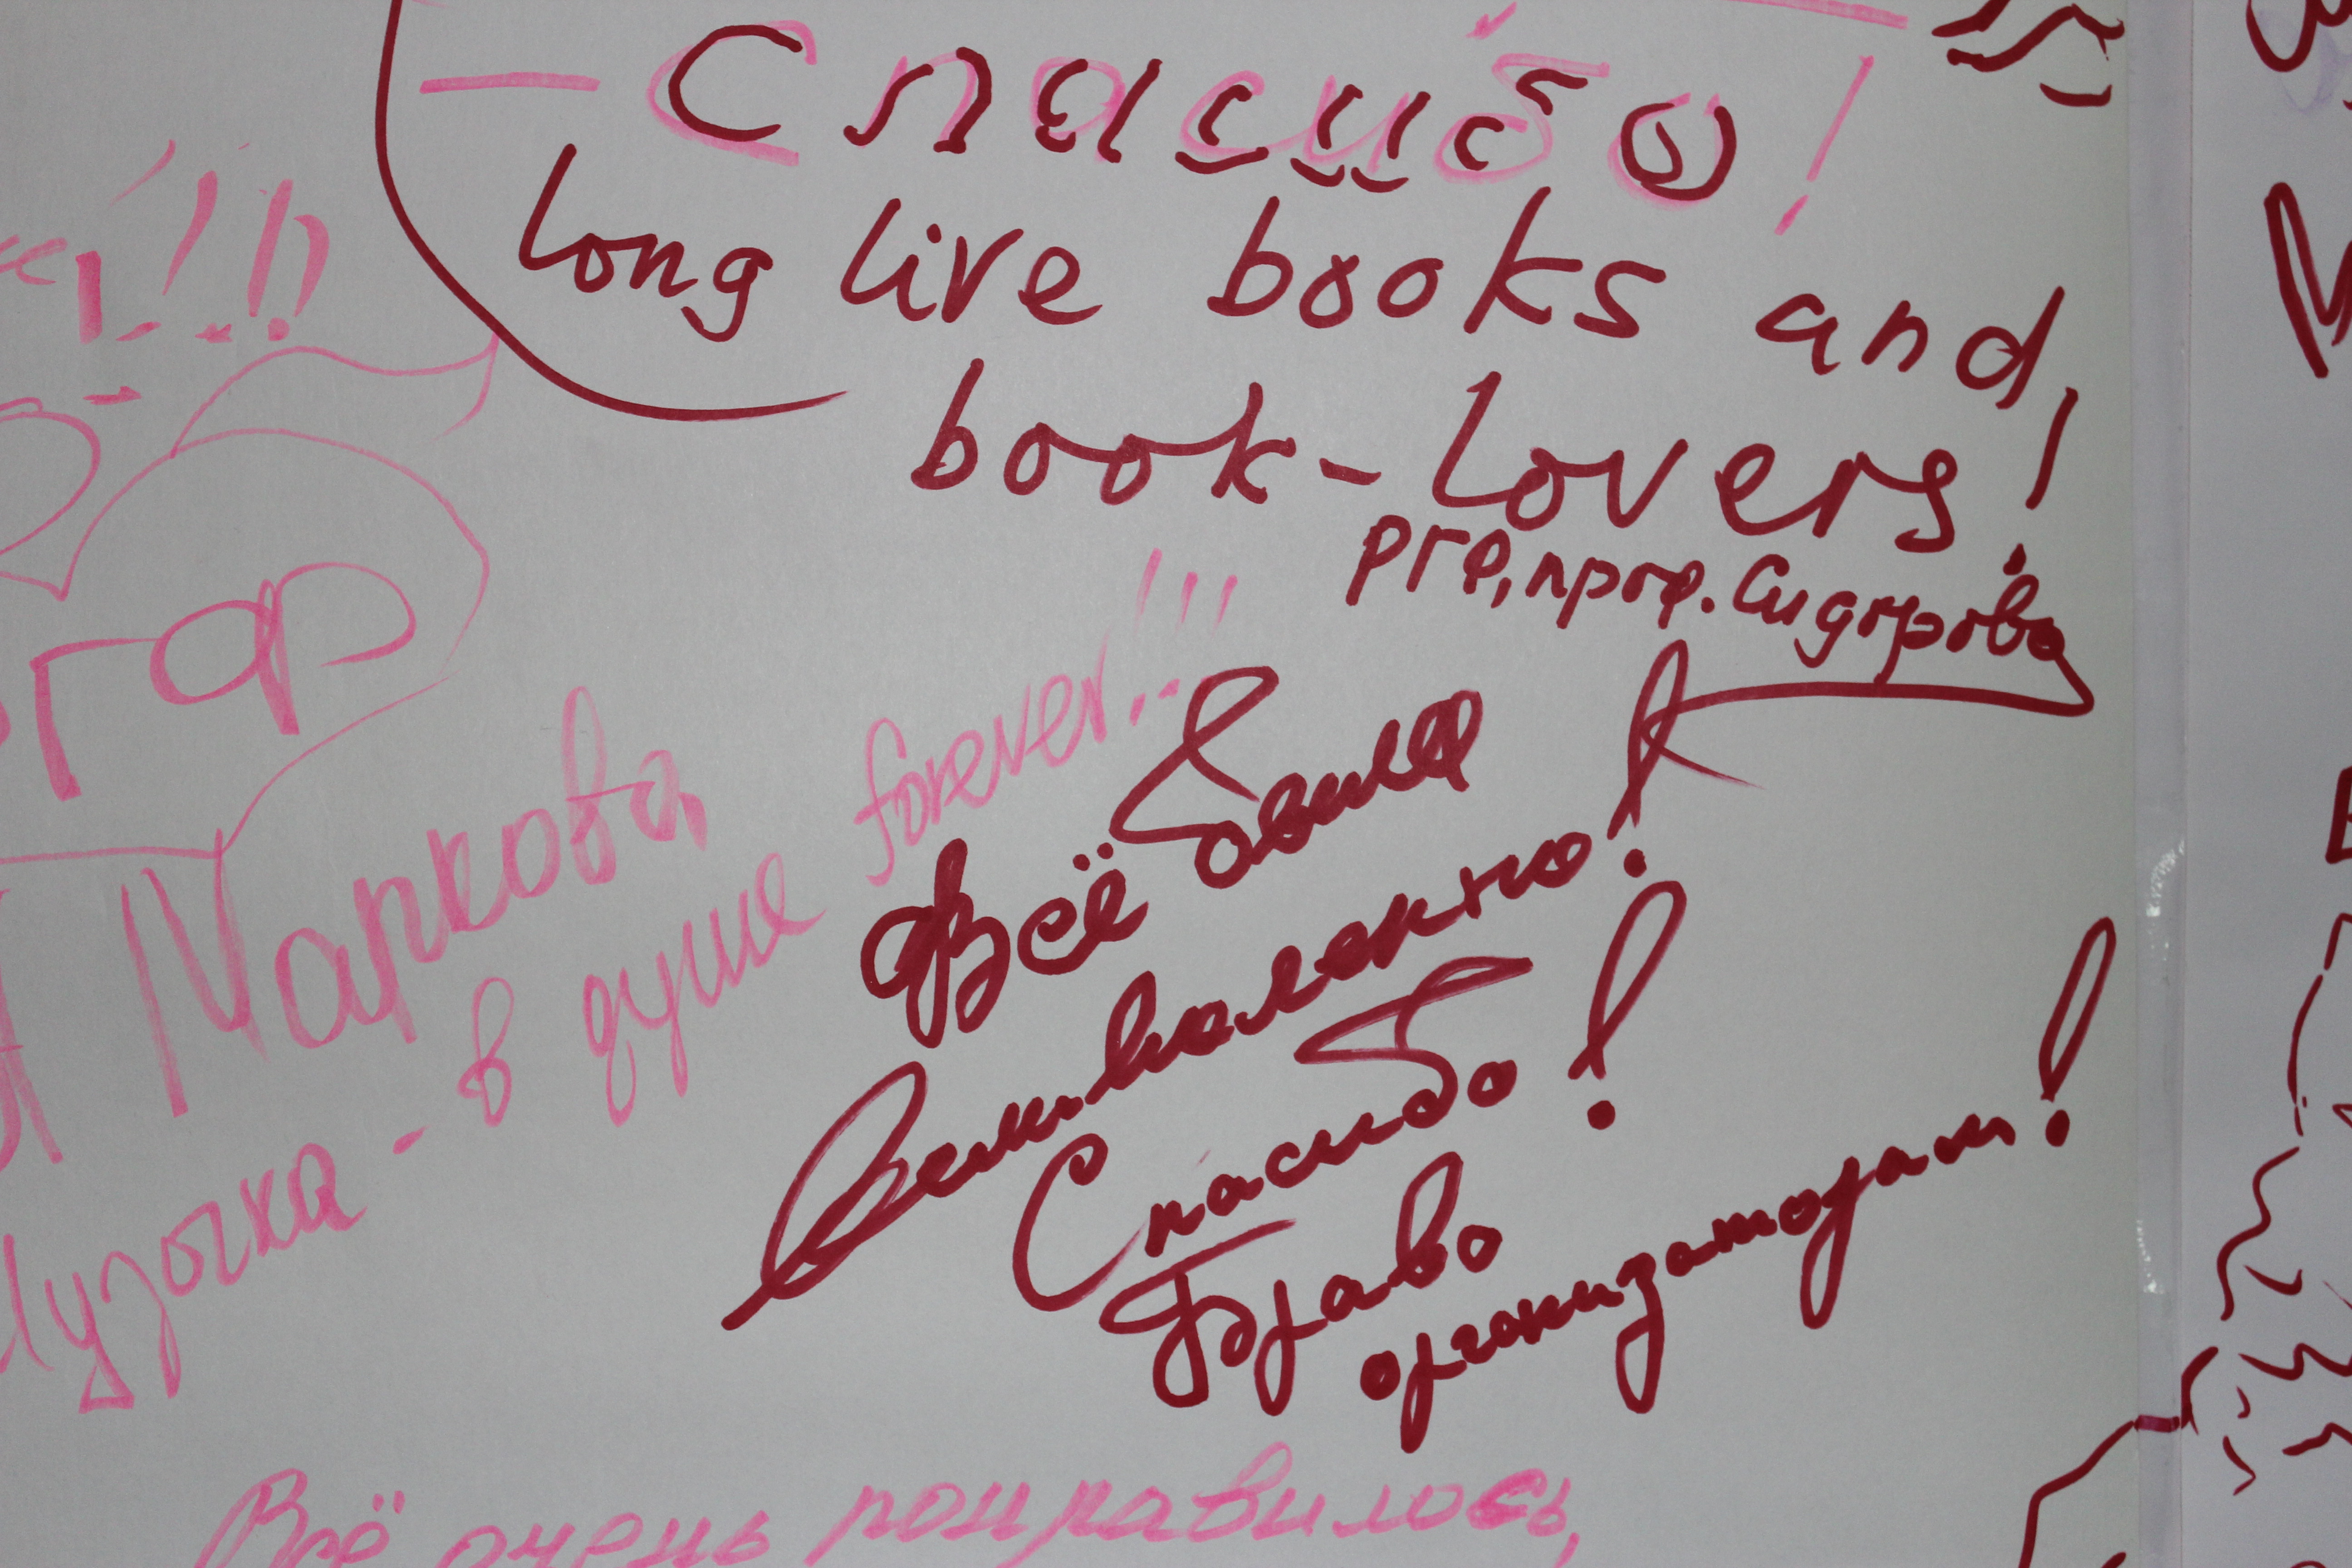 — Спасибо!
long live books and
book-lovers!
РГФ, проф. Сидорова
РГФ
Маркова,
- в душе forever!!!
Всё было
великолепно!
Спасибо!
Браво
организаторам!
Всё очень понравилось,